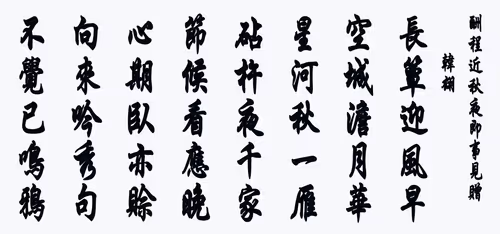 酬程近秋夜即事見贈
韓翃
長簟迎風早
空城澹月華
星河秋一雁
砧杵夜千家
節候看應晚
心期臥亦賒
向來吟秀句
不覺已鳴鴉